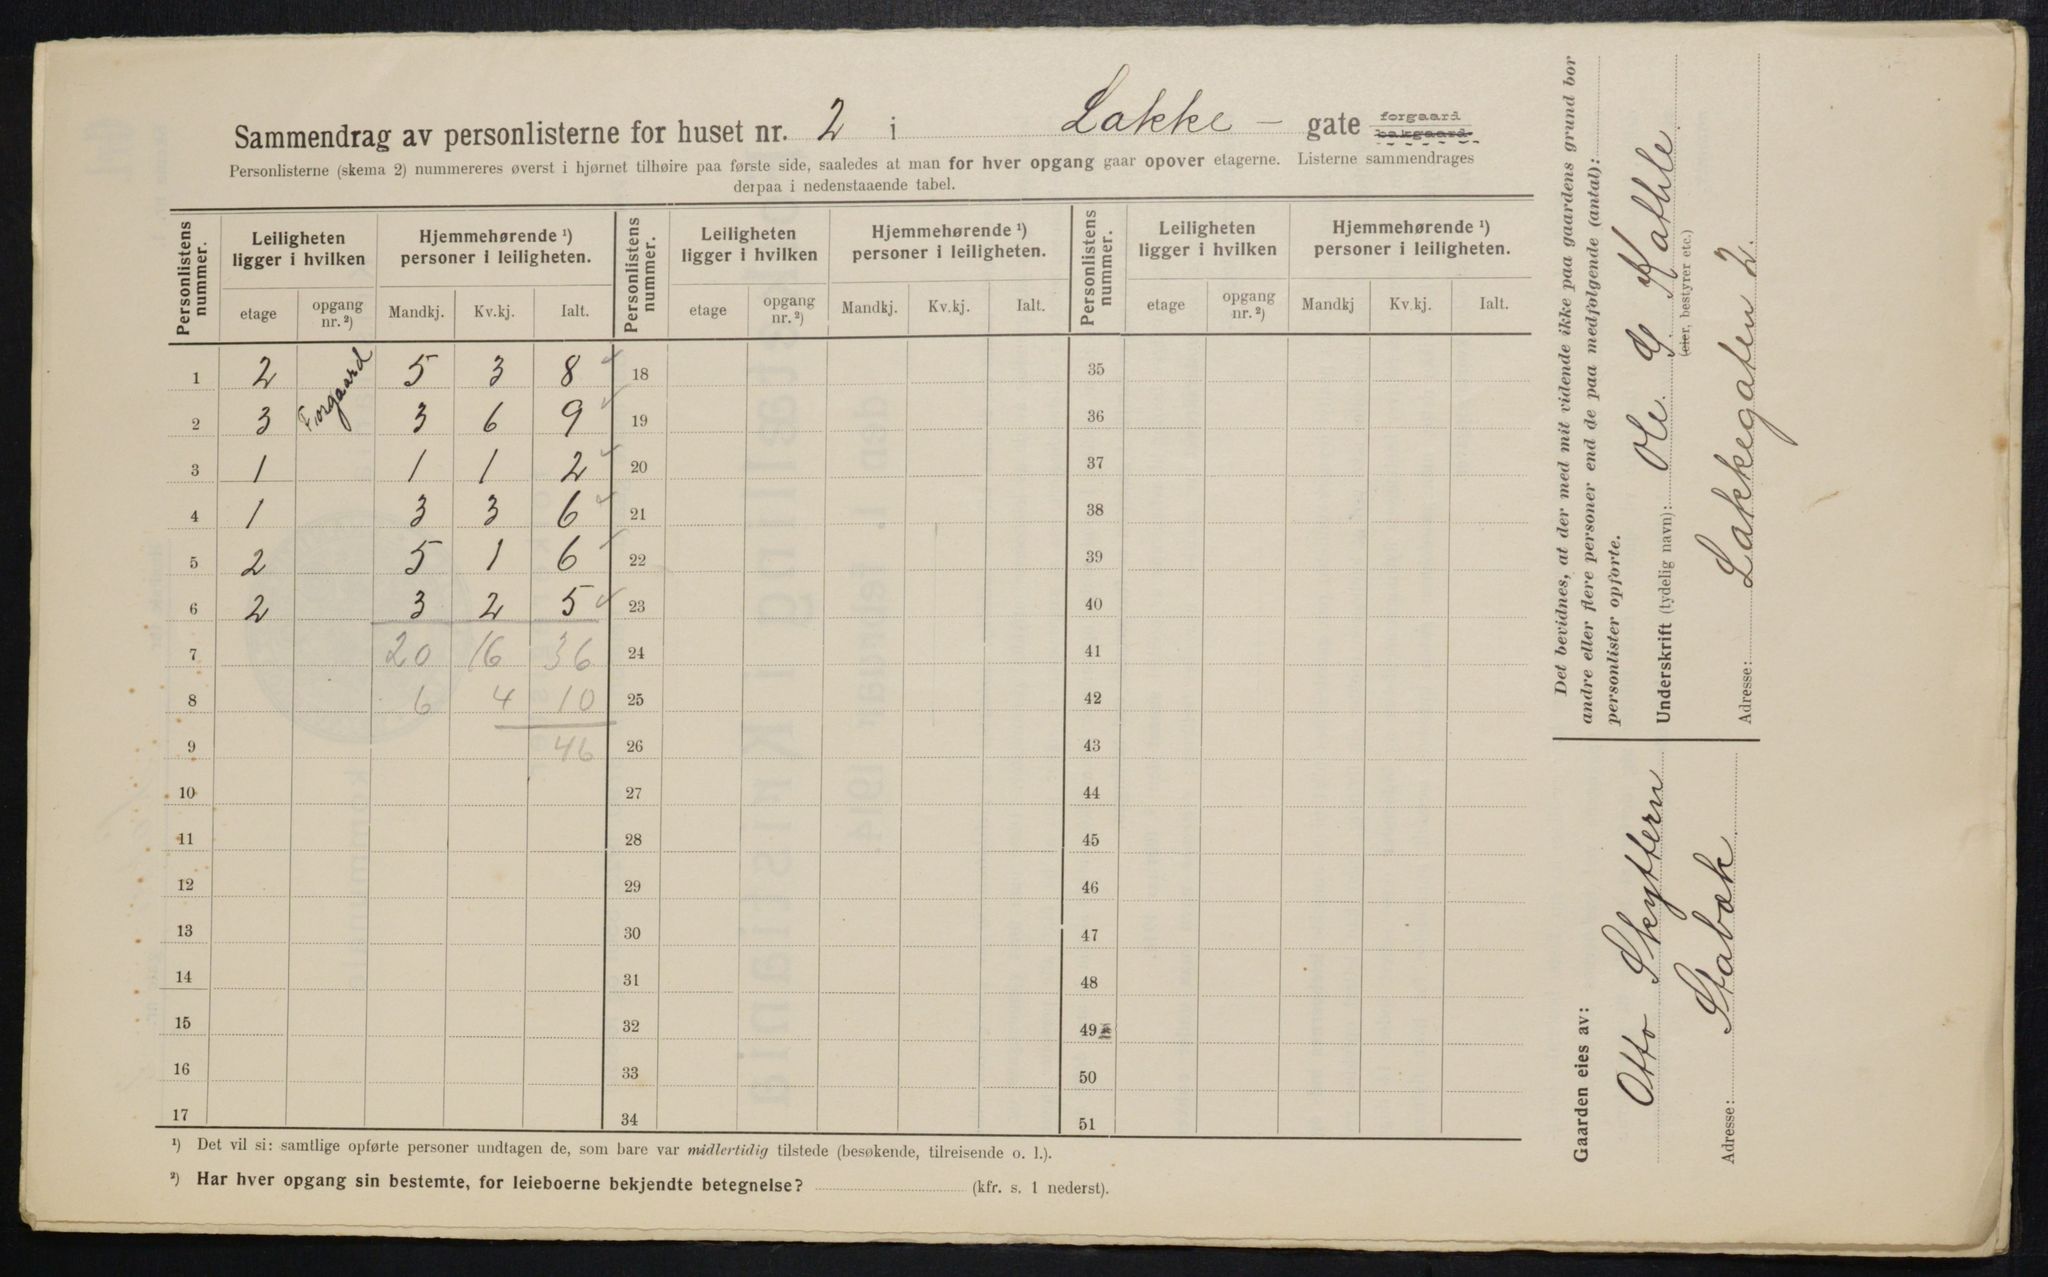 Sammendrag av personlisterne for huset nr. 2 i Lakke- gate forgaard bakgaard
Personlisterne (skema 2) nummereres øverst i hjørnet tilhøire paa første side, saaledes at man for hver opgang gaar opover etagerne. Listerne sammendrages
derpaa i nedenstaaende tabel.
Personlistens nummer. Leiligheten ligger i hvilken Hjemmehørende ¹) personer i leiligheten. Personlistens nummer. Leiligheten ligger i hvilken Hjemmehørende ¹) personer i leiligheten. Personlistens nummer. Leiligheten ligger i hvilken Hjemmehørende ¹) personer i leiligheten.
etage opgang nr.²) Mandkj. Kv.kj. Ialt. etage opgang nr.²) Mandkj. Kv.kj. Ialt. etage opgang nr.²) Mandkj Kv.kj. Ialt.
1 2 Forgaard 5 3 8 18 35
2 3 3 6 9 19 36
3 1 1 1 2 20 37
4 1 3 3 6 21 38
5 2 5 1 6 22 39
6 2 3 2 5 23 40
7 20 16 36 24 41
8 6 4 10 25 42
9 46 26 43
10 27 44
11 28 45
12 29 46
13 30 47
14 31 48
15 32 49
16 33 50
17 34 51
¹) Det vil si: samtlige opførte personer undtagen de, som bare var midlertidig tilstede (besøkende, tilreisende o. l.).
²) Har hver opgang sin bestemte, for leieboerne bekjendte betegnelse? (kfr. s. 1 nederst).
Det bevidnes, at der med mit vidende ikke paa gaardens grund bor
andre eller flere personer end de paa medfølgende (antal):
personlister opførte.
Underskrift (tydelig navn): Ole G
(eier, bestyrer etc.)
Adresse: Lakkegaten 2.
Gaarden eies av:
Otto Skyttern
Adresse: Stabæk